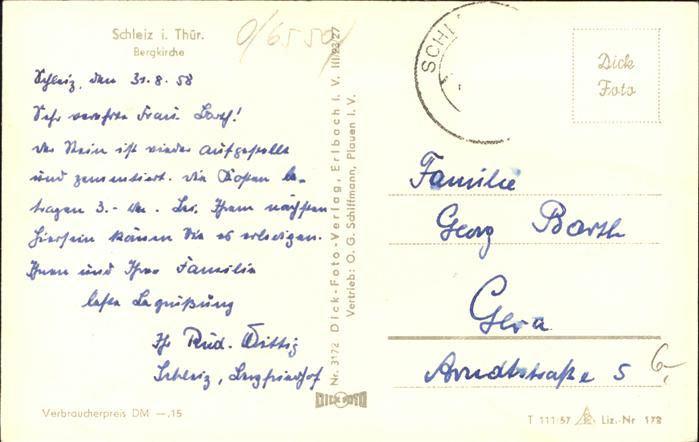 Schleiz i. Thür.
Bergkirche
0/6550/
Schleiz, den 31.8.58
Sehr verehrte Frau Barth!
der Stein ist wieder aufgestellt
und zementiert. die Kosten be-
tragen 3.- DM. Bei Ihrem nächsten
Hiersein können Sie es erledigen.
Ihnen und Ihrer Familie
beste Begrüßung
Ihr Rud. Wittig
Schleiz, Bergfriedhof
Verbraucherpreis DM —,15
Nr. 3172 Dick-Foto-Verlag, Erlbach i. V. III/23/27
Vertrieb: O. G. Schiffmann, Plauen i. V.
DICK FOTO
SCHL
Dick
Foto
Familie
Georg Barth
Gera
Arndtstraße 5
6,-
T 111/57 Liz.-Nr 178